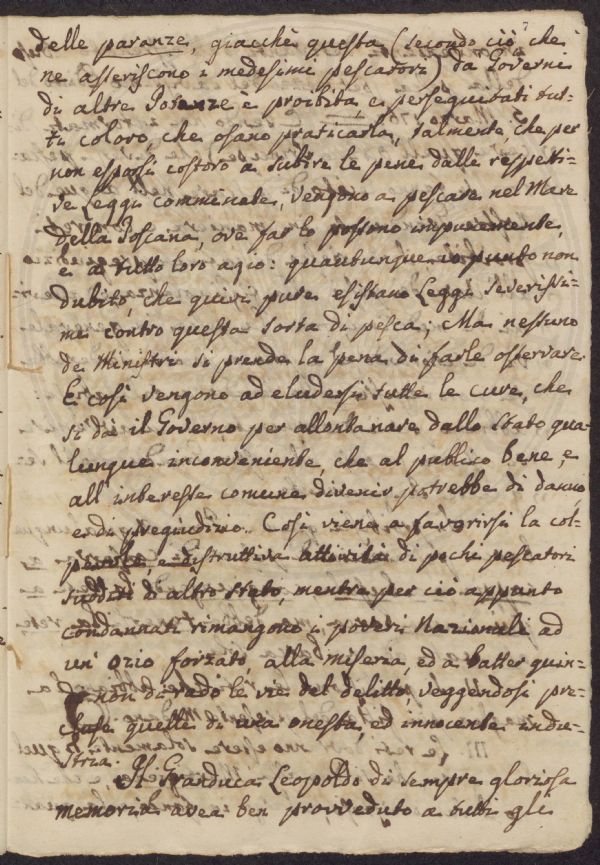 delle paranze, giacchè questa (secondo ciò che
ne asseriscono i medesimi pescatori) da Governi
di altre Potenze è proibita e perseguitati tut-
ti coloro, che osano praticarla, talmente, che per
non esporsi costoro a subire le pene dalle respetti-
ve Leggi comminate, vengono a pescare nel Mare
della Toscana, ove far lo possono impunemente,
e a tutto loro agio: quantunque io punto non
dubito, che quivi pure esistano Leggi severissi-
me contro questa sorta di pesca; Ma nessuno
de Ministri si prende la pena di farle osservare.
E così vengono ad eludersi tutte le cure, che
si dà il Governo per allontanare dallo Stato qua-
lunque inconveniente, che al publico bene, e
all' interesse comune divenir potrebbe di danno
e di pregiudizio. Così viene a favorirsi la col-
pevole e distruttiva attività di pochi pescatori
sudditi di altro stato, mentre per ciò appunto
condannati rimangono i poveri Nazionali ad
un' ozio forzato, alla miseria, ed a batter quin-
di non di rado le vie del delitto, veggendosi pre-
cluse quelle di una onesta, ed innocente indu-
stria.
Il Granduca Leopoldo di sempre gloriosa
memoria avea ben provveduto a tutti gli